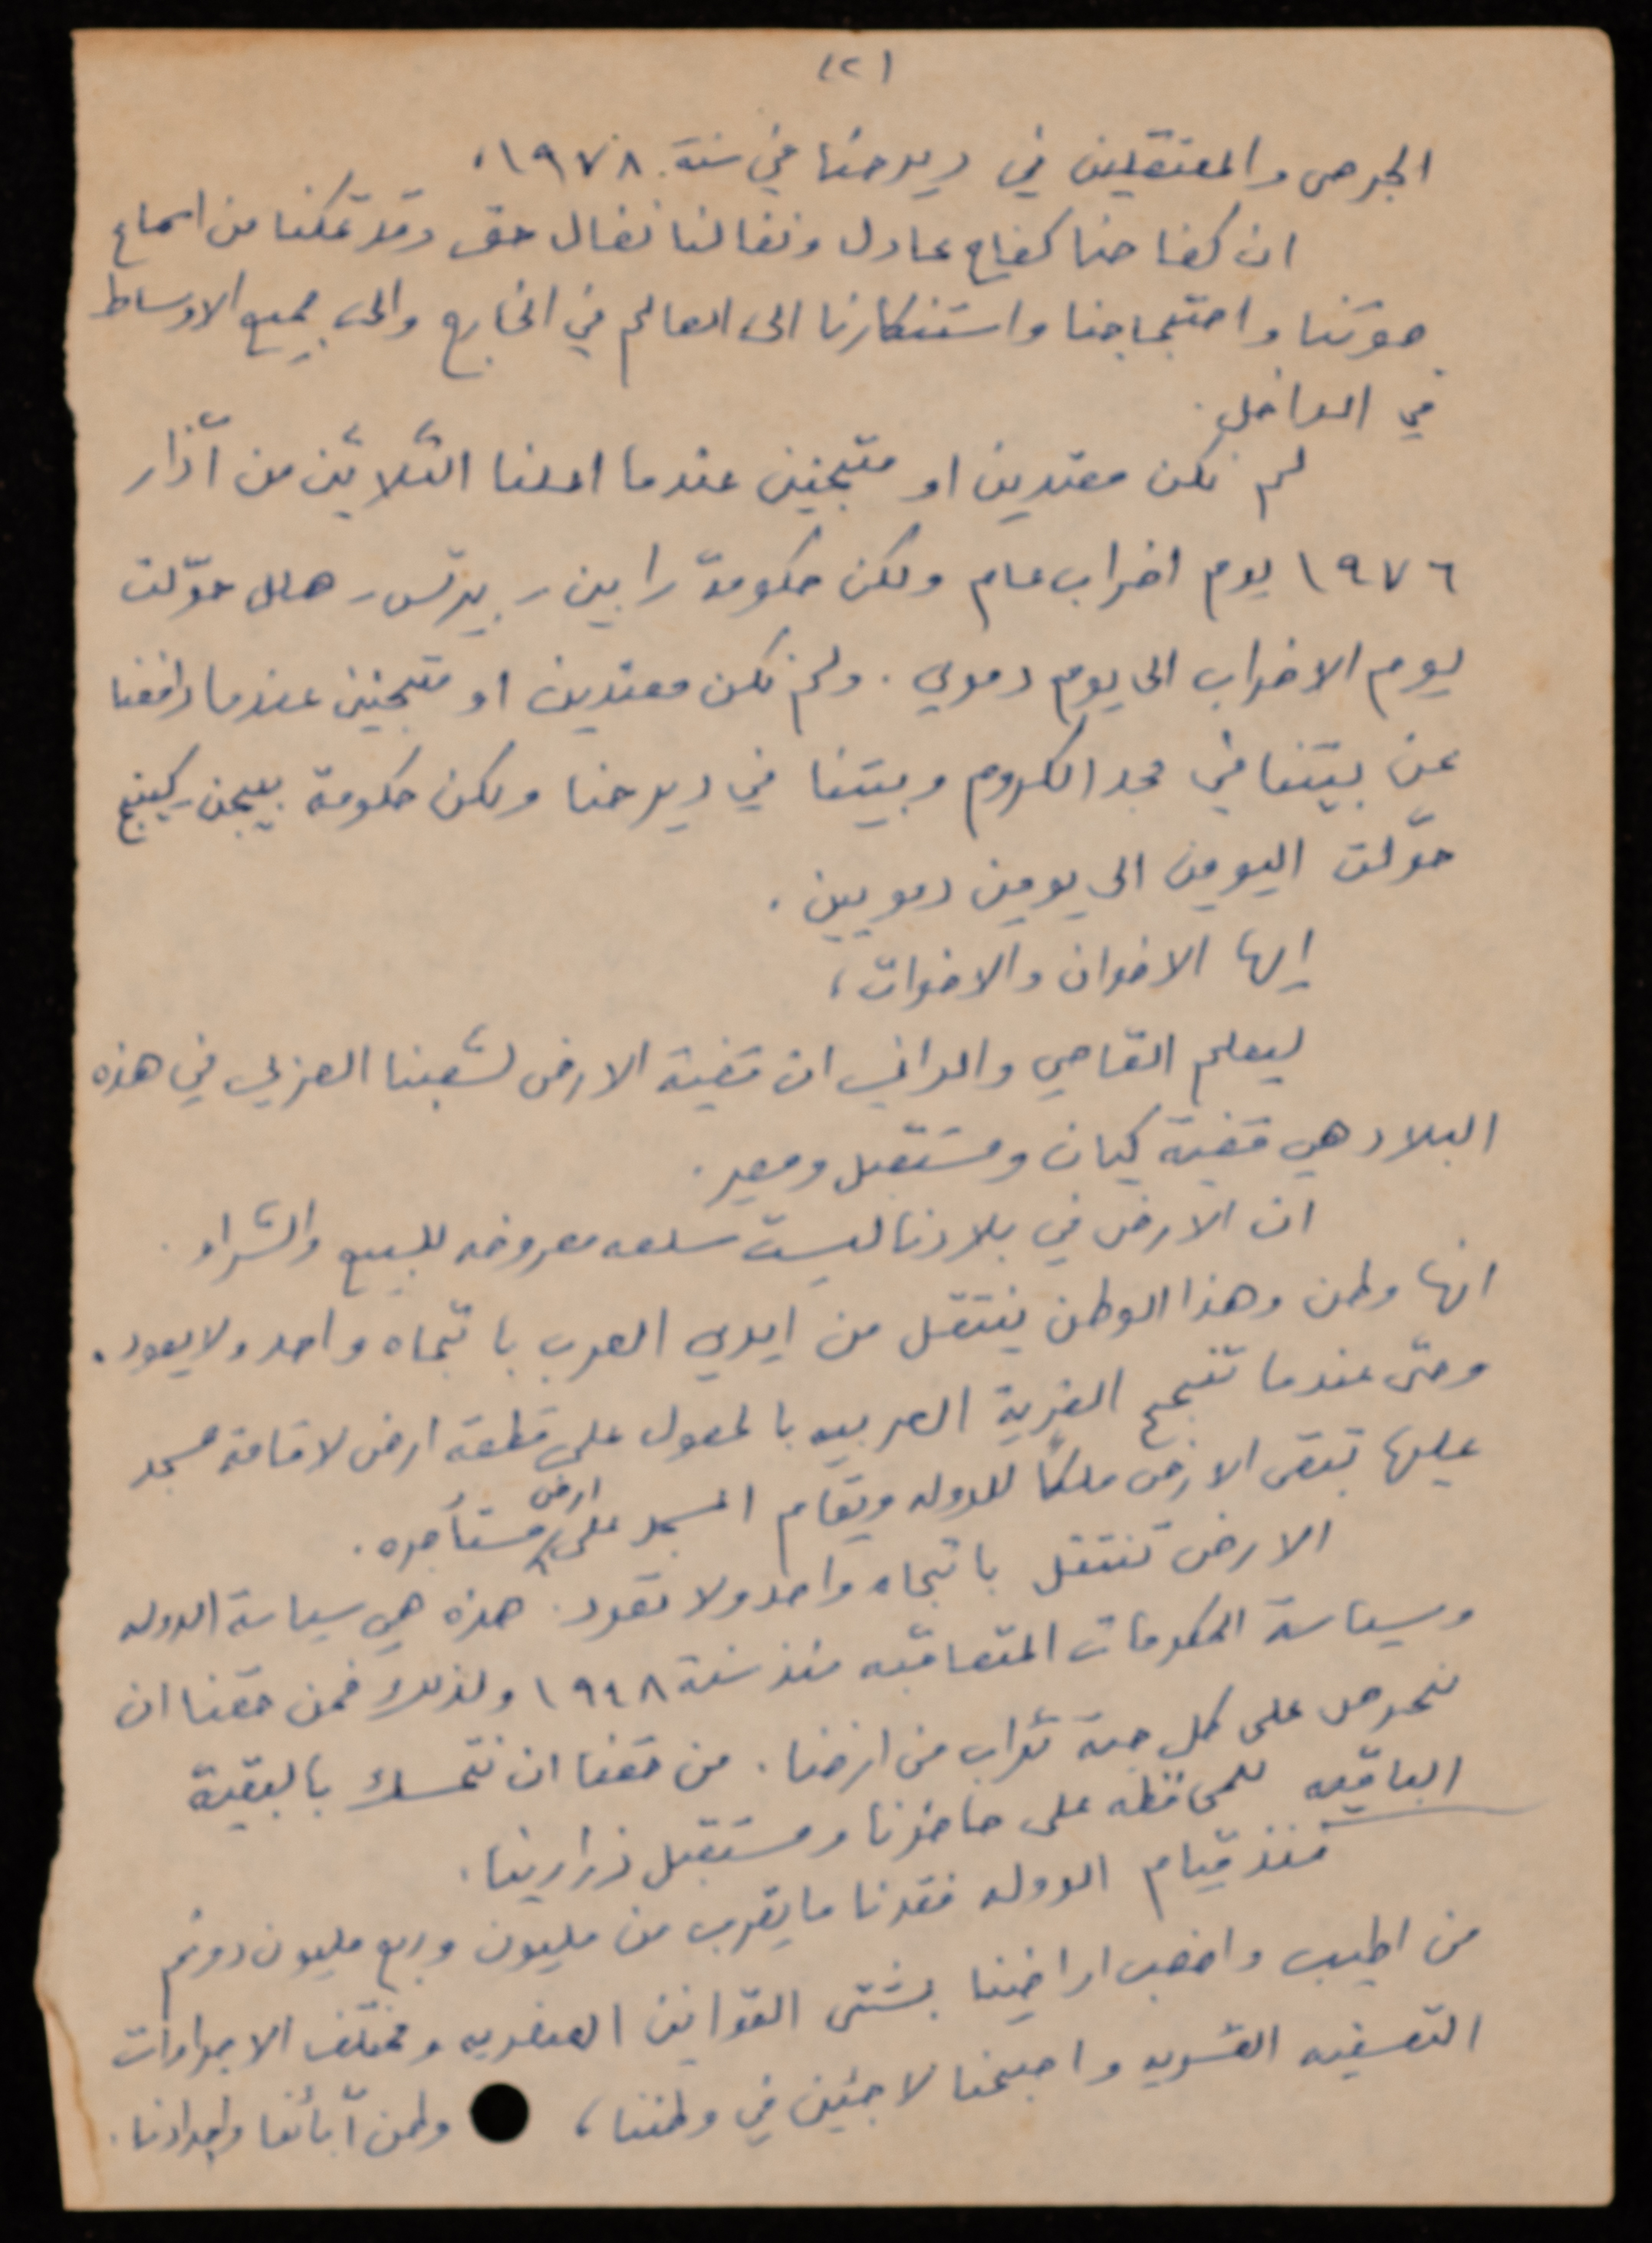 (٢)
الجرحى والمعتقلين في ديرحنا في سنة ١٩٧٨.
ان كفاحنا كفاح عادل ونضالنا نضال حق وقد تمكنا من اسماع
صوتنا واحتجاجنا واستنكارنا الى العالم في الخارج والى جميع الاوساط
في الداخل.
لم نكن معتدين او متجنين عندما اعلنا الثلاثين من آذار
١٩٧٦ يوم اضراب عام ولكن حكومة رابين - بيرتس - هلل حوّلت
يوم الاضراب الى يوم دموي. ولم نكن معتدين او متجنين عندما دافعنا
عن بيتنا في مجد الكروم وبيتنا في ديرحنا ولكن حكومة بيجن - كينج
حوّلت اليومين الى يومين دمويين.
ايها الاخوان والاخوات،
ليعلم القاصي والداني ان قضية الارض لشعبنا العربي في هذه
البلاد هي قضية كيان ومستقبل ومصير.
ان الارض في بلادنا ليست سلعه معروضه للبيع والشراء.
انها وطن وهذا الوطن ينتقل من ايدي العرب باتجاه واحد ولا يعود.
وحتى عندما تنجح القرية العربيه بالحصول على قطعة ارض لاقامة مسجد
عليها تبقى الارض ملكاً للدوله ويقام المسجد على ارض مستأجره.
الارض تنتقل باتجاه واحد ولا تعود. هذه هي سياسة الدوله
وسياسة الحكومات المتعاقبه منذ سنة ١٩٤٨ ولذلك فمن حقنا ان
نحرص على كل حبة تراب من ارضنا. من حقنا ان نتمسك بالبقية
الباقيه للمحافظه على حاضرنا ومستقبل ذرارينا.
منذ قيام الدوله فقدنا ما يقرب من مليون وربع مليون دونم
من اطيب واخصب اراضينا بشتى القوانين العنصريه ومختلف الاجراءات
التعسفيه القسريه واصبحنا لاجئين في وطننا، وطن آبائنا واجدادنا.